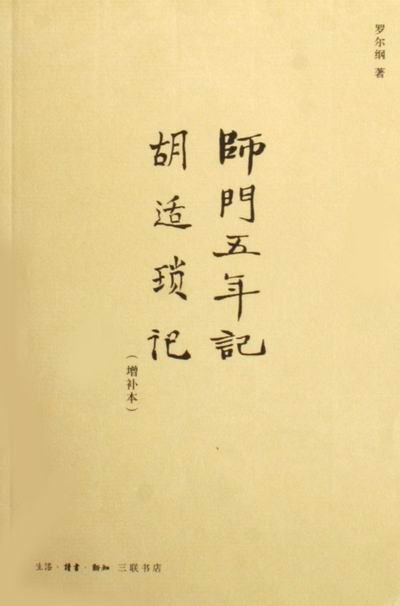 罗尔纲 著
師門五年記
胡适琐记
(增补本)
生活·讀書·新知 三联书店